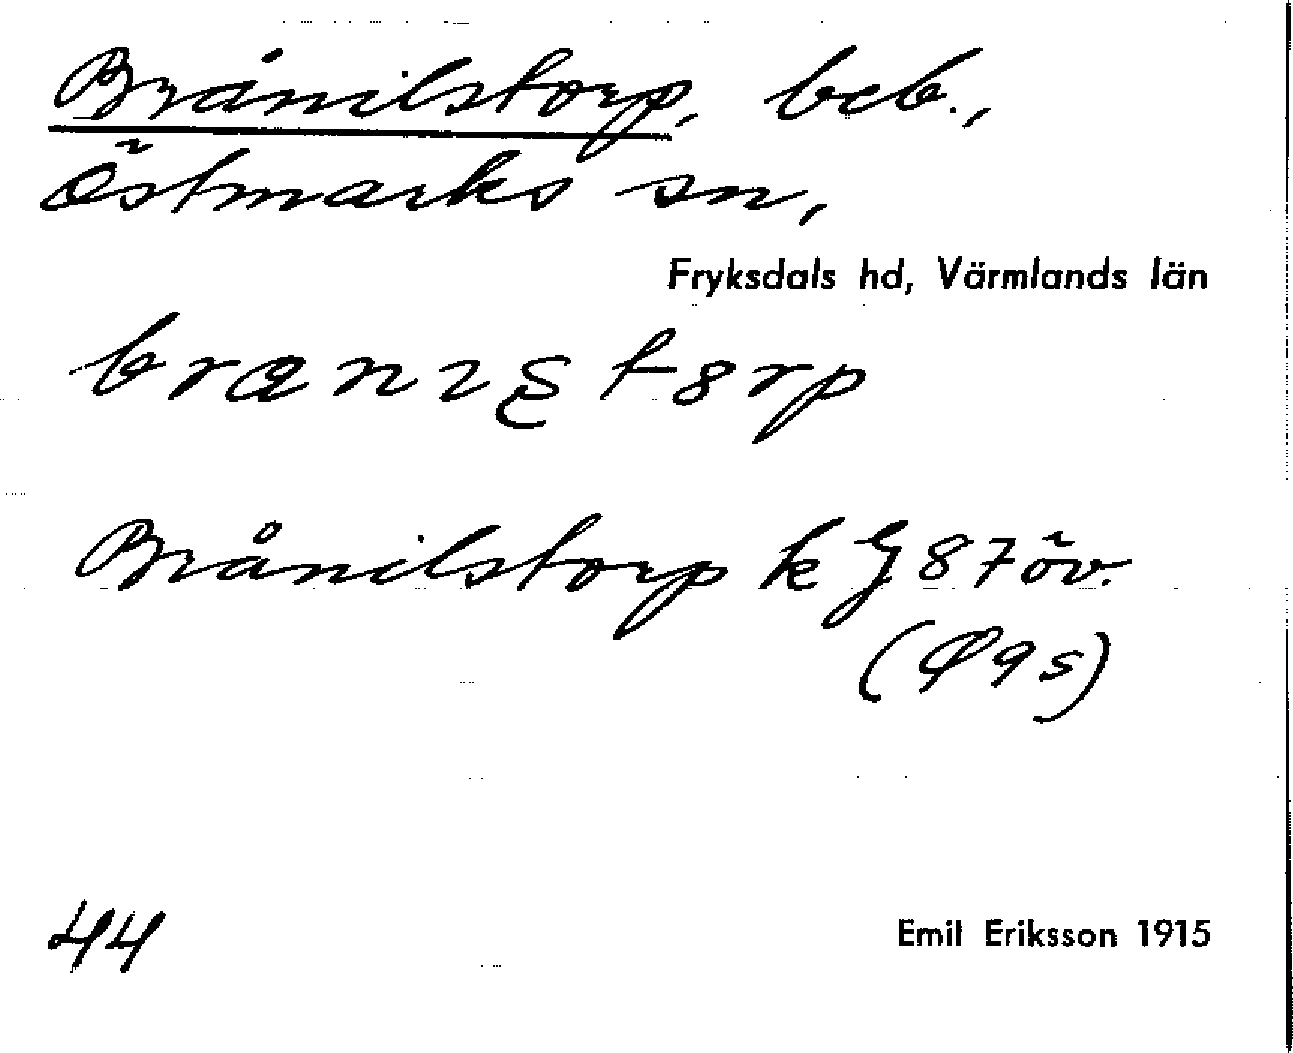 Brånilstorp, beb.,
Östmarks sn,
Fryksdals hd, Värmlands län
Brånilstorp k G 87 öv.
44
Emil Eriksson 1915